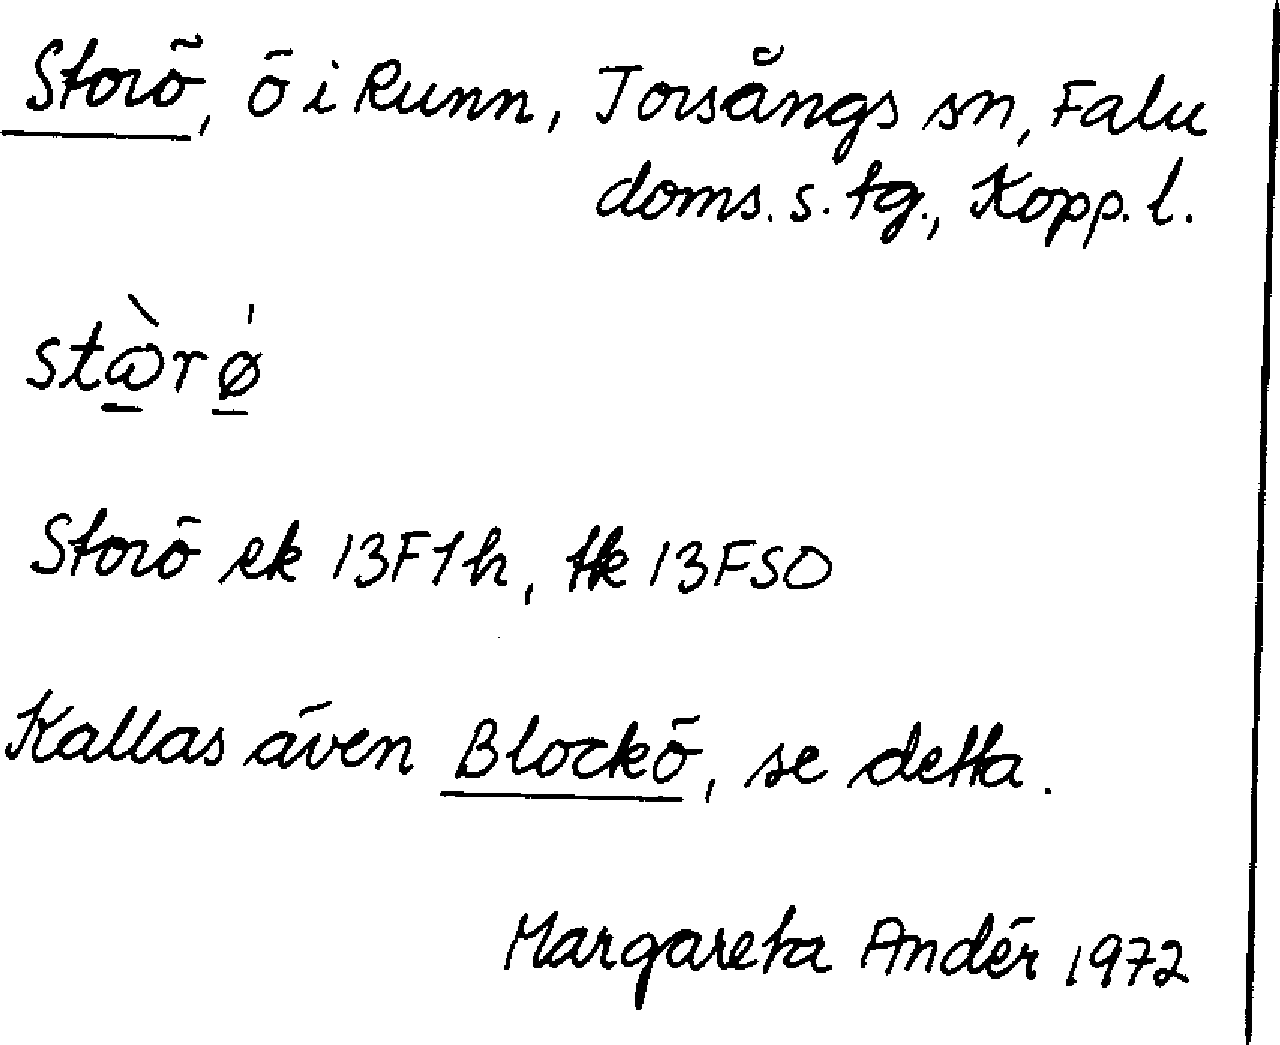 Storö, ö i Runn, Torsångs sn, Falu
doms. s. tg., Kopp. l.
Storö ek 13F1h, tk 13FSO
Kallas även Blockö, se detta.
Margareta Andér 1972